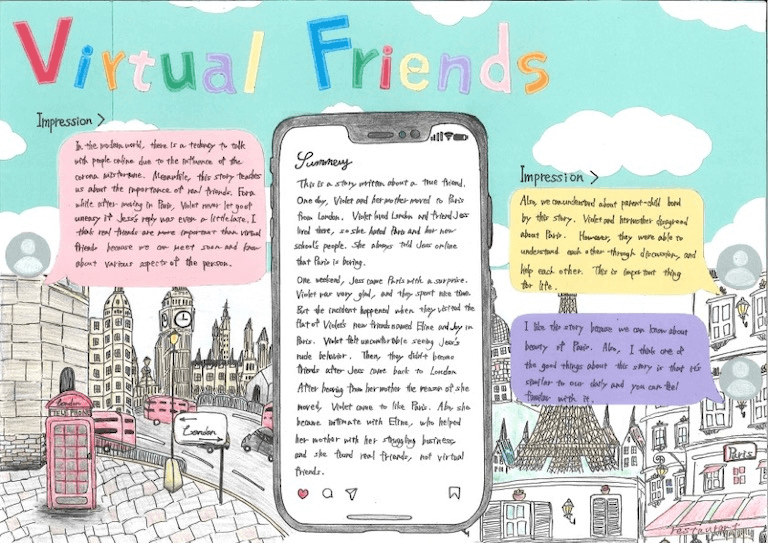 Virtual Friends
Impression >
In the modern world, there is a tendency to talk
with people online due to the influence of the
corona misfortune. Meanwhile, this story teaches
us about the importance of real friends. For a
while after moving in Paris, Violet never let go of
uneasy if Jess's reply was even a little late. I
think real friends are more important than virtual
friends because we can meet soon and know
about various aspects of the person.
Summery
This is a story written about a true friend.
One day, Violet and her mother moved to Paris
from London. Violet loved London and friend Jess
lived there, so she hated Paris and her new
school's people. She always told Jess online
that Paris is boring.
One weekend, Jess came Paris with a surprise.
Violet was very glad, and they spent nice time.
But the incident happened when they visited the
flat of Violet's new friends named Eline and Joy in
Paris. Violet felt uncomfortable seeing Jess's
rude behavior. Then, they didn't become
friends after Jess came back to London.
After hearing from her mother the reason of she
moved, Violet came to like Paris. Also, she
became intimate with Eline, who helped
her mother with her struggling business,
and she found real friends, not virtual
friends.
Impression >
Also, we can understand about parent-child bond
by this story. Violet and her mother disagreed
about Paris. However, they were able to
understand each other through discussion, and
help each other. This is important thing
for life.
I like this story because we can know about
beauty of Paris. Also, I think one of
the good things about this story is that it's
similar to our daily and you can feel
familiar with it.
London
TELEPHONE
London
Paris
restaurant